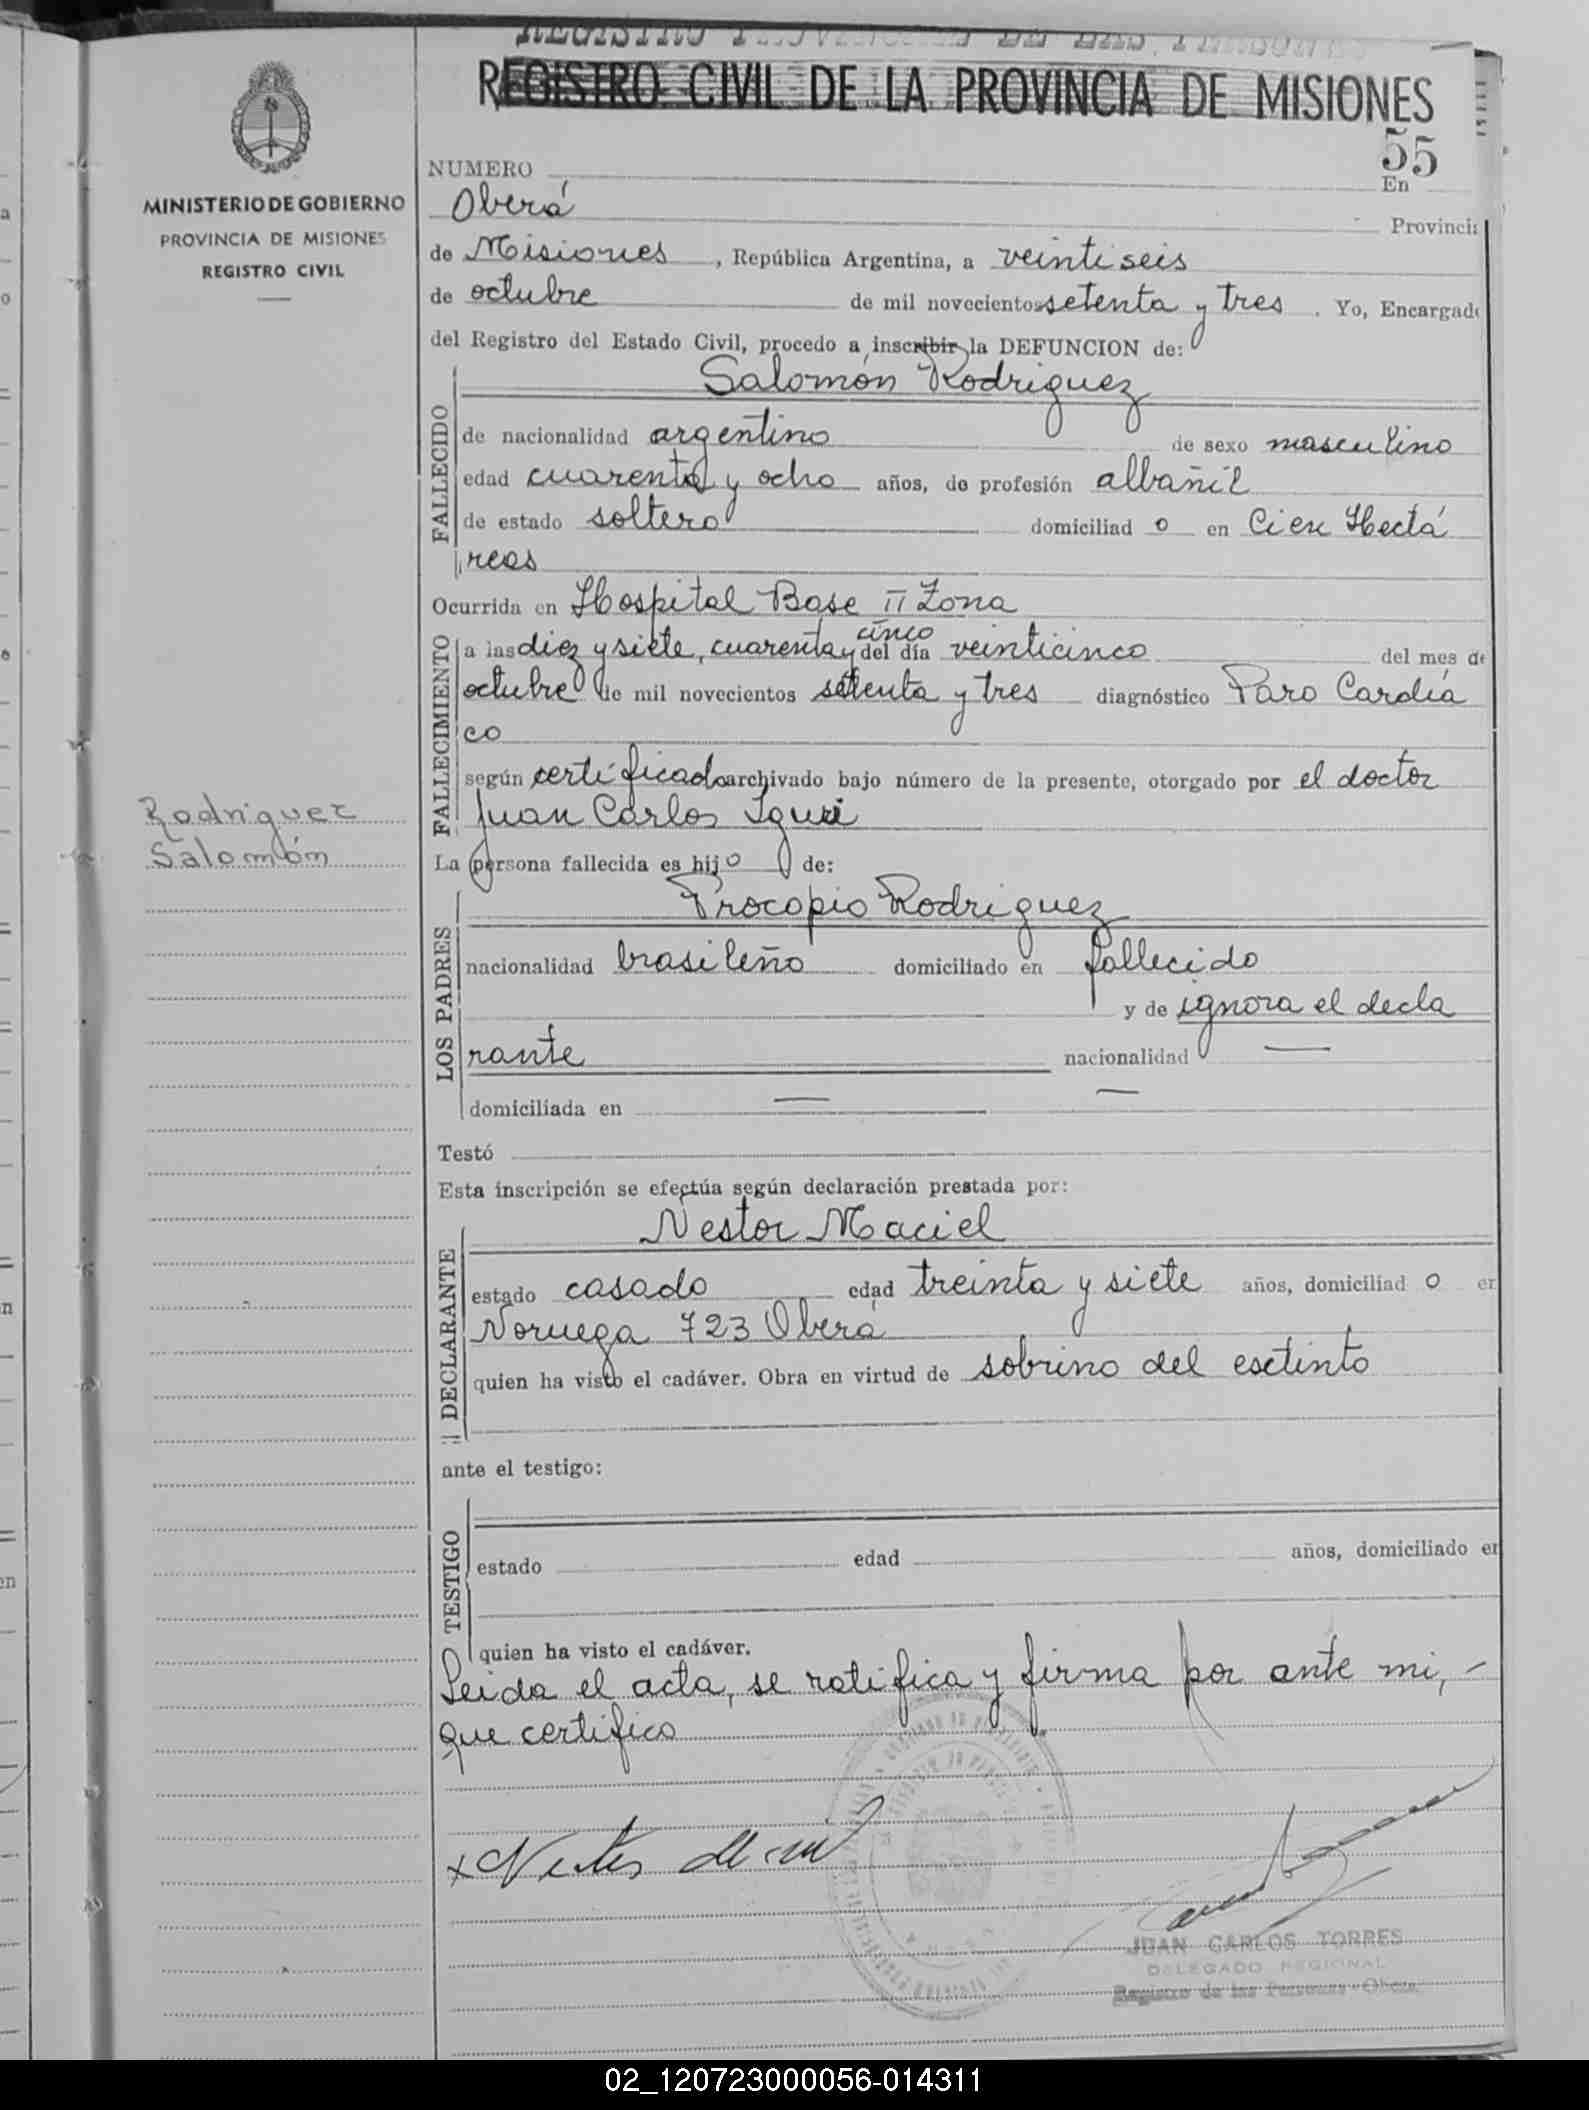 REGISTRO CIVIL DE LA PROVINCIA DE MISIONES
MINISTERIO DE GOBIERNO
PROVINCIA DE MISIONES
REGISTRO CIVIL
Rodriguez
Salomón
NUMERO 55
En
Oberá Provincia
de Misiones, República Argentina, a veintiseis
de octubre de mil novecientos setenta y tres. Yo, Encargado
del Registro del Estado Civil, procedo a inscribir la DEFUNCION de:
FALLECIDO
Salomón Rodriguez
de nacionalidad argentino de sexo masculino
edad cuarenta y ocho años, de profesión albañil
de estado soltero domiciliado en Cien Hectá
reas
Ocurrida en Hospital Base II Zona
FALLECIMIENTO
a las diez y siete, cuarenta y cinco del día veinticinco del mes de
octubre de mil novecientos setenta y tres diagnóstico Paro Cardía
co
según certificado archivado bajo número de la presente, otorgado por el doctor
Juan Carlos
La persona fallecida es hijo de:
LOS PADRES
Procopio Rodriguez
nacionalidad brasileño domiciliado en fallecido
y de ignora el decla
rante nacionalidad —
domiciliada en — —
Testó
Esta inscripción se efectúa según declaración prestada por:
DECLARANTE
Nestor Maciel
estado casado edad treinta y siete años, domiciliado en
Noruega 723 Oberá
quien ha visto el cadáver. Obra en virtud de sobrino del esctinto
ante el testigo:
TESTIGO
estado edad años, domiciliado en
quien ha visto el cadáver.
Leida el acta, se ratifica y firma por ante mi, -
que certifico
JUAN CARLOS TORRES
DELEGADO REGIONAL
Registro de las Personas - Oberá
02_120723000056-014311